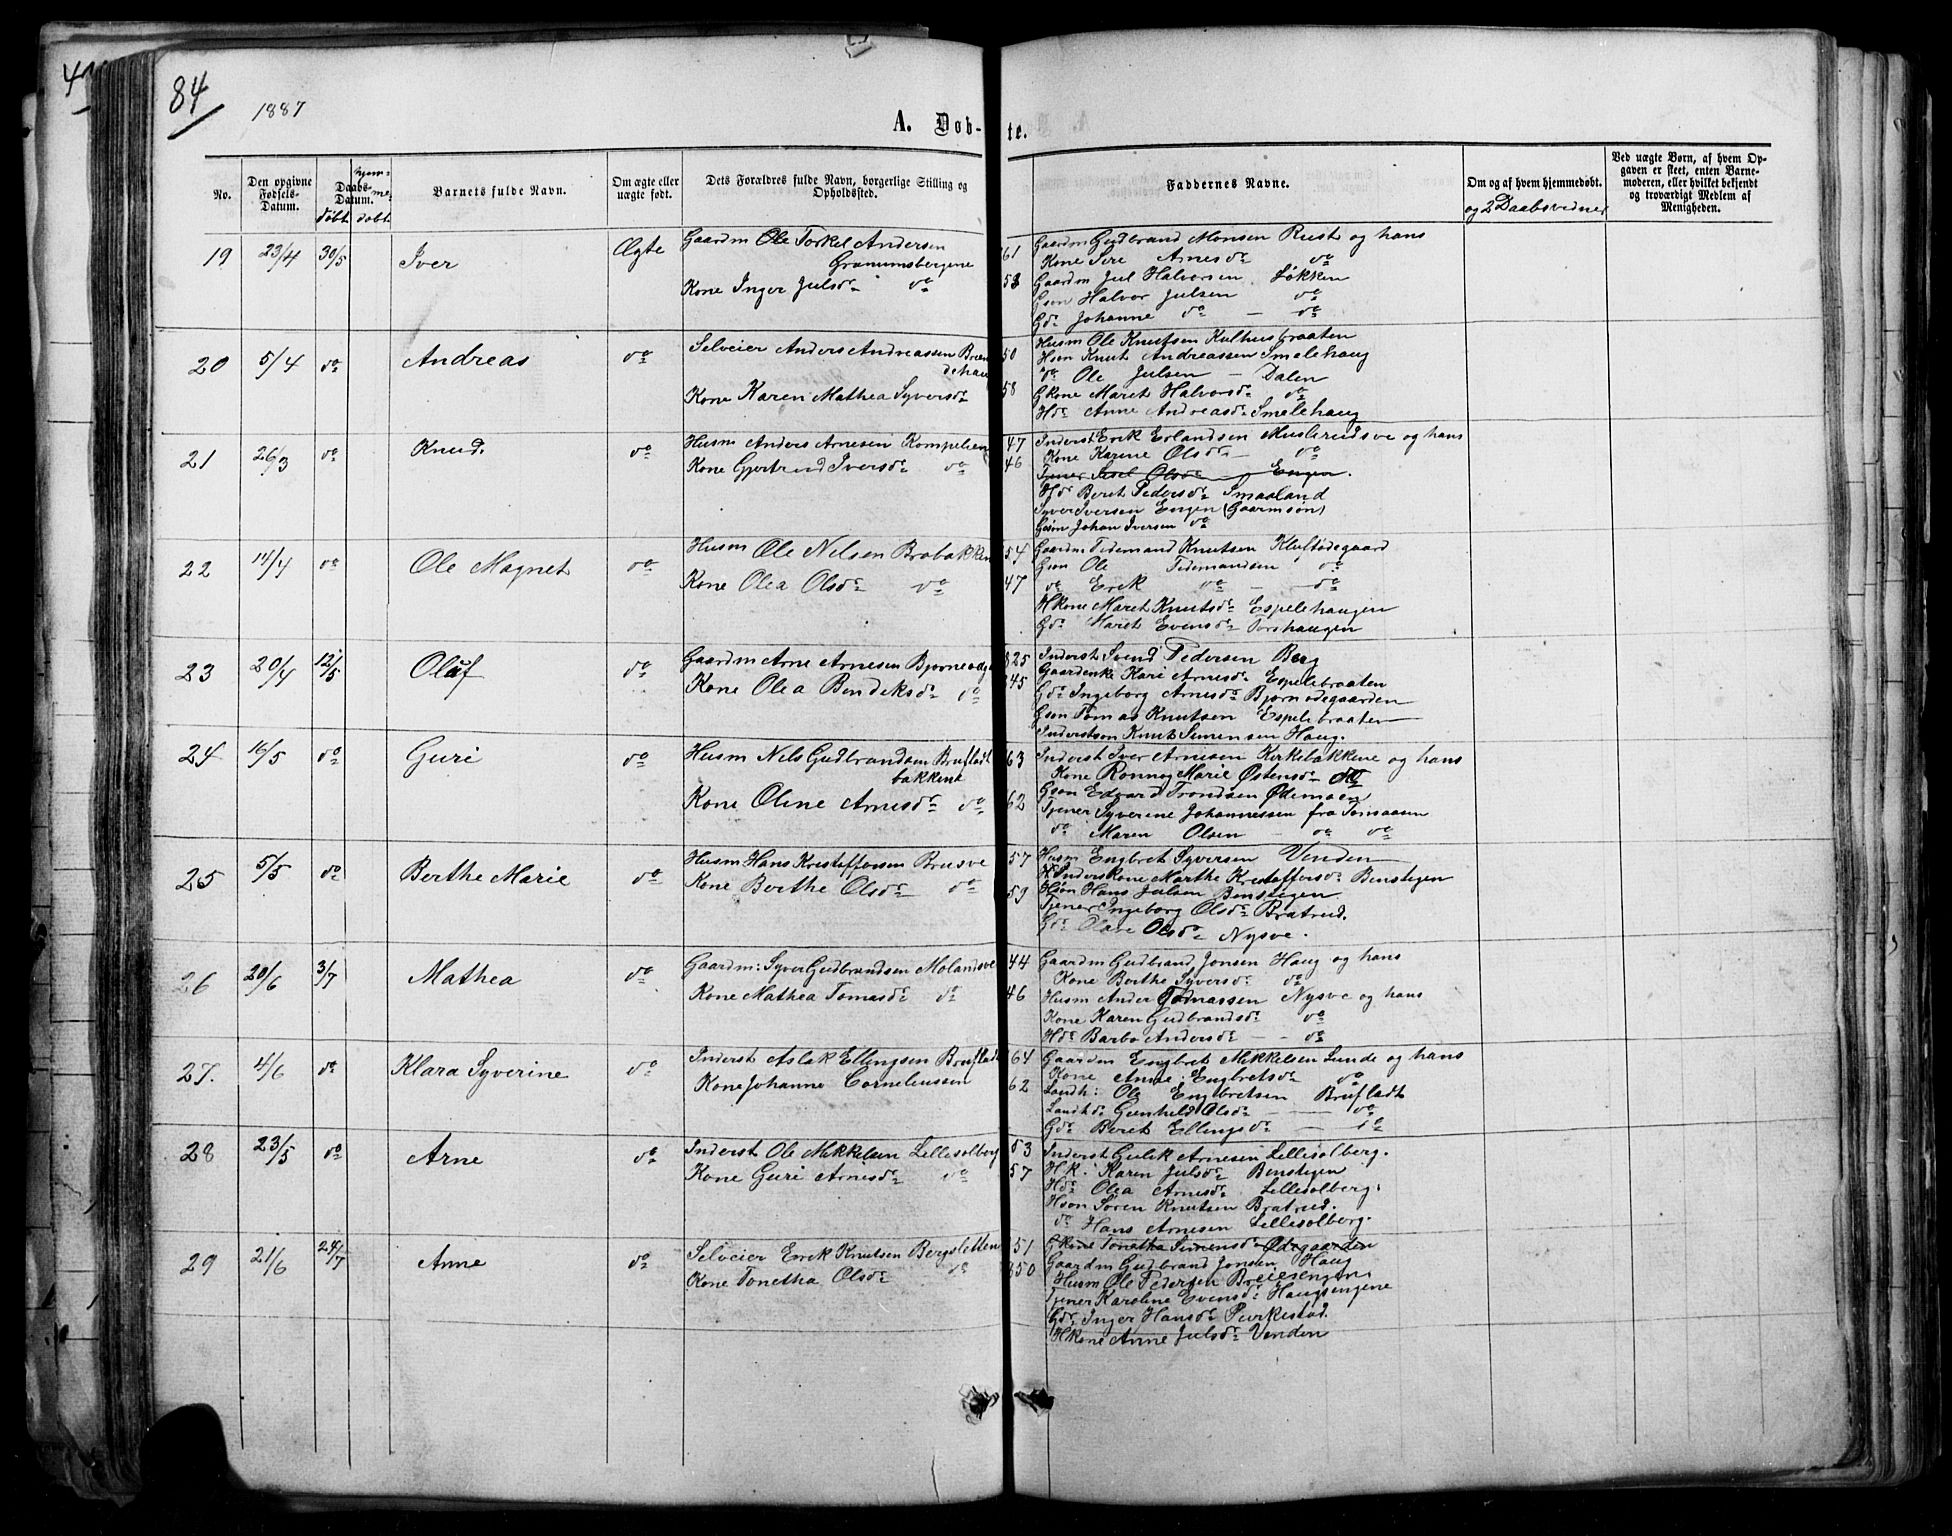 84
1887
A. Døb-
te.
No.
Den opgivne Fødsels-Datum.
Daabs-Datum.
døbt
hjemmedøbt
Barnets fulde Navn.
Om ægte eller uægte født.
Dets Forældres fulde Navn, borgerlige Stilling og Opholdssted.
Faddernes Navne.
Om og af hvem hjemmedøbt.
og 2 Daabsvidner
Ved uægte Børn, af hvem Opgaven er skeet, enten Barnemoderen, eller hvilket bekjendt og troværdigt Medlem af Menigheden.
19 23/4 30/5 Iver Ægte
Gaardm Ole Torkel Andersen
Granumsbergene
Kone Inger Julsd. do
61
53
Gaardm Gudbrand Monsen Rust og hans
Kone Siri Arnesd. do
Gaardm Jul Halvorsen Løkken
Gsøn Halvor Julsen do
Gd. Johanne do — do
20 5/4 do Andreas do
Selveier Anders Andreassen Bræn
dehau
Kone Karen Mathea Syversd.
50
58
Husm Ole Knutsen Kulhusbraaten
Hsøn Knut Andreassen Smelehaug
do Ole Julsen — Dalen
Gkone Maret Halvorsd. do
Hd. Anne Andreasd. Smelehaug
21 26/3 do Knud. do
Husm Anders Arnesen Kompelien
Kone Gjertrud Iversd. do
47
46
Inderst Erik Erlandsen Muslirudsve og hans
Kone Karine Olsd. — do
Tjener Sisel Olsd. Engen.
Hd. Beret Pedersd. Smaaland
Syver Iversen Engen (Gaarmsøn)
Gsøn Johan Iversen do
22 11/4 do Ole Magnet do
Husm Ole Nilsen Brobakken
Kone Olea Olsd. do
54
47
Gaardm Tidemand Knutsen Kluftødegaard
Gsøn Ole Tidemandsen do
do Erik do — do
Hkone Maret Knutsd. Espelehaugen
Gd. Maret Evensd. Torshaugen
23 20/4 12/5 Oluf do
Gaardm Arne Arnesen Bjørneødg
Kone Olea Bendiksd. do
825
245
Inderst Svend Pedersen Berg
Gaardenke Kari Arnesd. Espelibraaten
Gd. Ingeborg Arnesd. Bjørnødegaarden
Gsøn Tomas Knutsen Espelibraaten
Inderstsøn Knut Simensen Haug.
24 16/5 do Guri do
Husm Nils Gudbrandsen Brufladt
bakkene
Kone Oline Arnesd. do
63
62
Inderst Iver Arnesen Kirkebakkene og hans
Kone Ronnog Marie Østensd. do
Gsøn Edvard Trondsen Ødemoen
Tjener Syverine Johannessen fra Tomaasen
do Maren Olsen — do do
25 5/5 do Berthe Marie do
Husm Hans Kristoffersen Brusve
Kone Berthe Olsd. do
57
59
Husm Engbret Syversen Venden
Inderskone Marthe Kristoffersd. Benstigen
Hsøn Hans Julsen Benstigen
Tjener Ingeborg Olsd. Bratrud.
Gd. Olave Olsd. Nysve.
26 20/6 3/7 Mathea do
Gaardm: Syver Gudbrandsen Molandsve
Kone Mathea Tomasd. do
44
46
Gaardm Gudbrand Jonsen Haug og hans
Kone Berthe Syversd. do
Husm Ander Tomassen Nysve og hans
Kone Karen Gudbrandsd. do
Hd. Barbo Andersd. — do
27. 4/6 do Klara Syverine do
Inderst Aslak Ellingsen Brufladt
Kone Johanne Corneliussen
64
62
Gaardm Engbret Mikkelsen Lunde og hans
Kone Anne Engbretsd. do
Landh: Ole Engbretsen Brufladt
Landhd. Gunhild Olsd. — do
Gd. Beret Ellingsd. — do
28 23/5 do Arne do
Inderst Ole Mikkelsen Lillesolberg
Kone Guri Arnesd. do
53
57
Inderst Gulik Arnesen Lillesolberg.
H.k: Karen Julsd. Benstigen
Hd. Olea Arnesd. Lillesolberg.
Hsøn Søren Knutsen Bratrud.
do Hans Arnesen Lillesolberg.
29 21/6 24/7 Anne do
Selveier Erik Knutsen Bergsletten
Kone Tonetha Olsd. do
51
850
Gkone Tonetha Simensd. Ødegaarden
Gaardm Gudbrand Jonsen Haug
Husm Ole Pedersen Breiesengen
Tjener Karoline Evensd. Haugsengene
Gd. Inger Hansd. Purkestad.
Hkone Anne Julsd. Venden